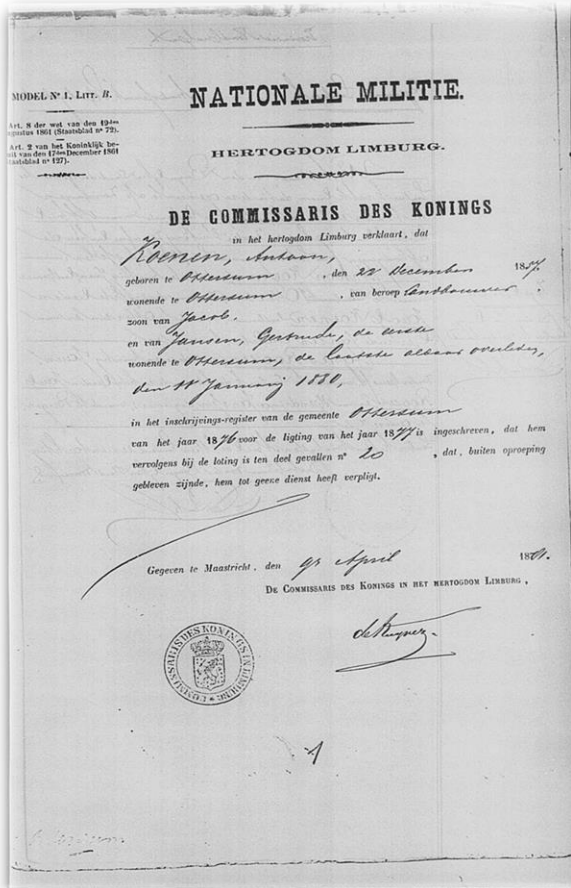 MODEL Nº 1, LITT. B.
Art. 8 der wet van den 19den
ugustus 1861 (Staatsblad nº 72).
Art. 2 van het Koninklijk be-
uit van den 17den December 1861
taatsblad nº 127).
NATIONALE MILITIE.
HERTOGDOM LIMBURG.
DE COMMISSARIS DES KONINGS
in het hertogdom Limburg verklaart, dat
Koenen, Antoon,
geboren te Ottersum, den 22 December 1857.
wonende te Ottersum, van beroep Landbouwer,
zoon van Jacob.
en van Jansen, Gertrude, de eerste
wonende te Ottersum, de laatste aldaar overleden,
den Januarij 1880,
in het inschrijvings-register van de gemeente Ottersum
van het jaar 1876 voor de ligting van het jaar 1877 is ingeschreven, dat hem
vervolgens bij de loting is ten deel gevallen nº 20, dat, buiten oproeping
gebleven zijnde, hem tot geene dienst heeft verpligt.
Gegeven te Maastricht, den April 1881.
DE COMMISSARIS DES KONINGS IN HET HERTOGDOM LIMBURG,
de Kuyper
COMMISSARIS DES KONINGS IN LIMBURG